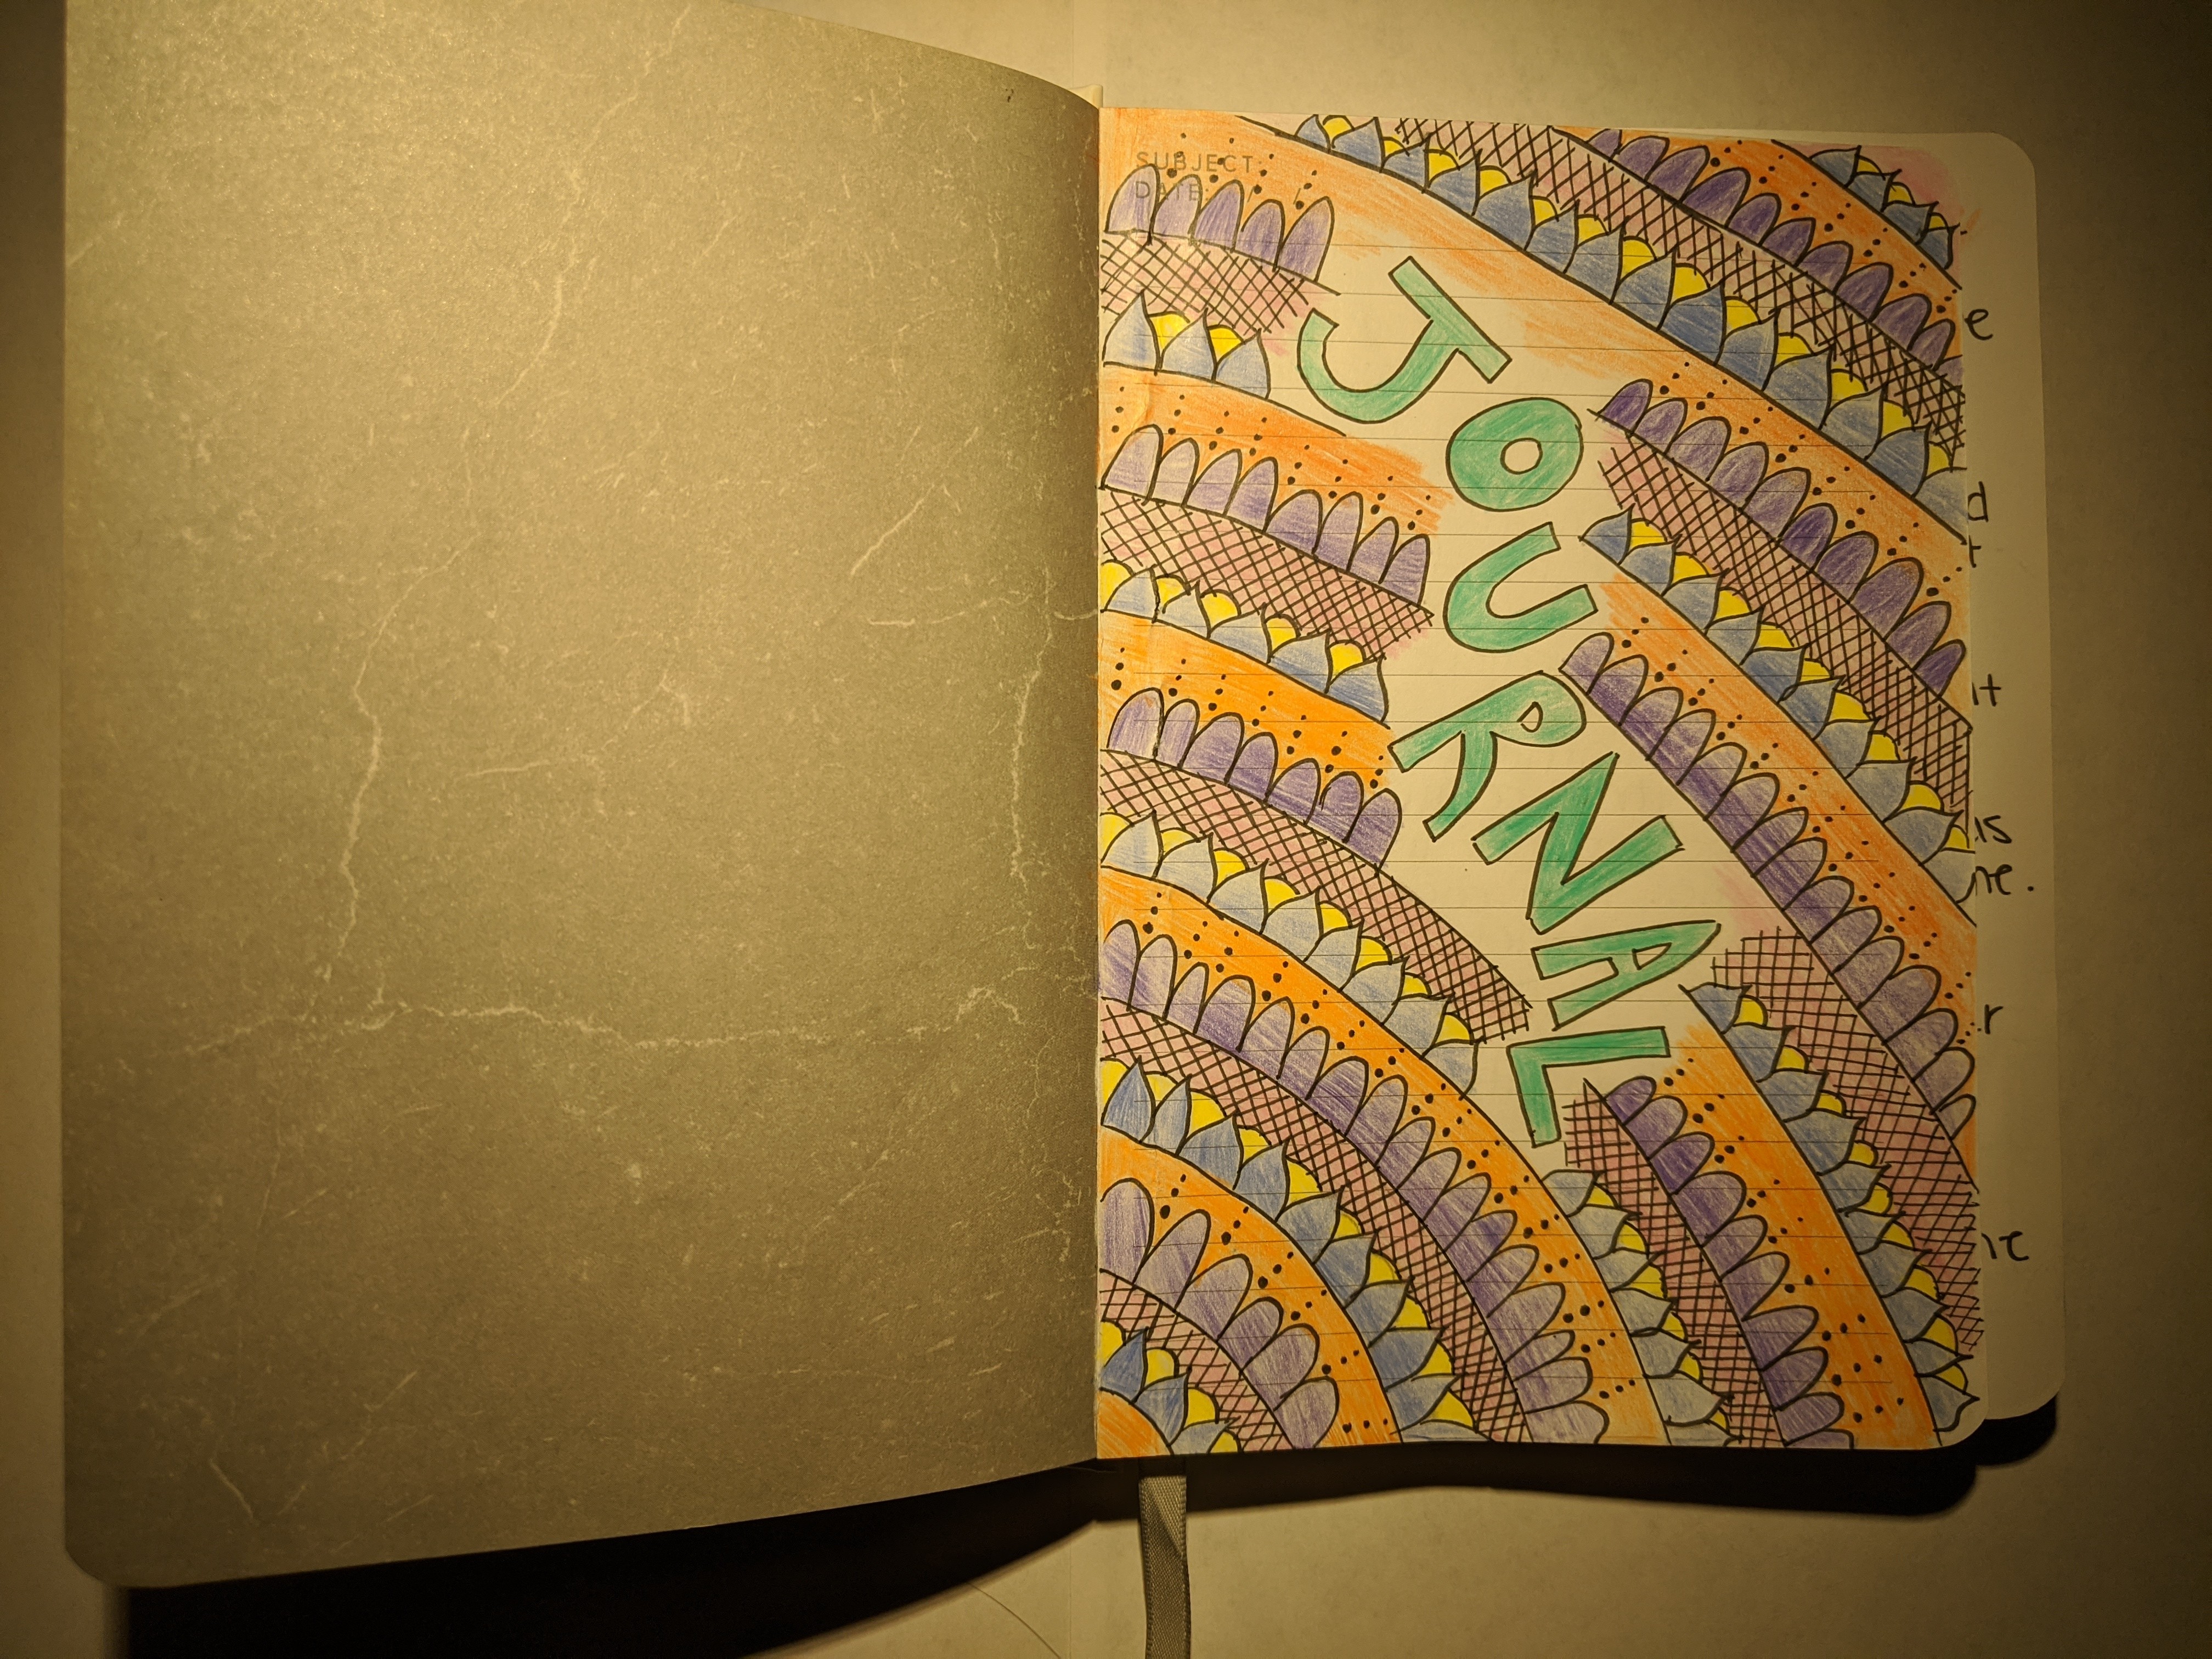 SUBJECT:
DATE:
JOURNAL
e
d
t
it
is
ne.
r
ne